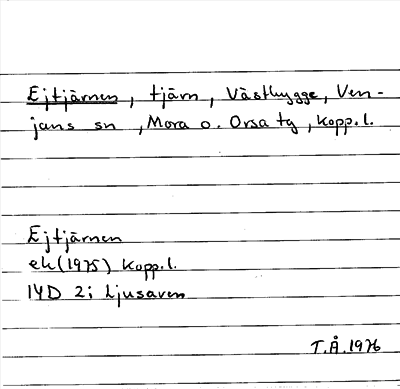 Ejtjärnen, tjärn, Västbygge, Ven-
jans sn, Mora o. Orsa tg, Kopp. l.
Ejtjärnen
ek (1975) Kopp. l.
14D 2i Ljusaven
T.Å. 1976